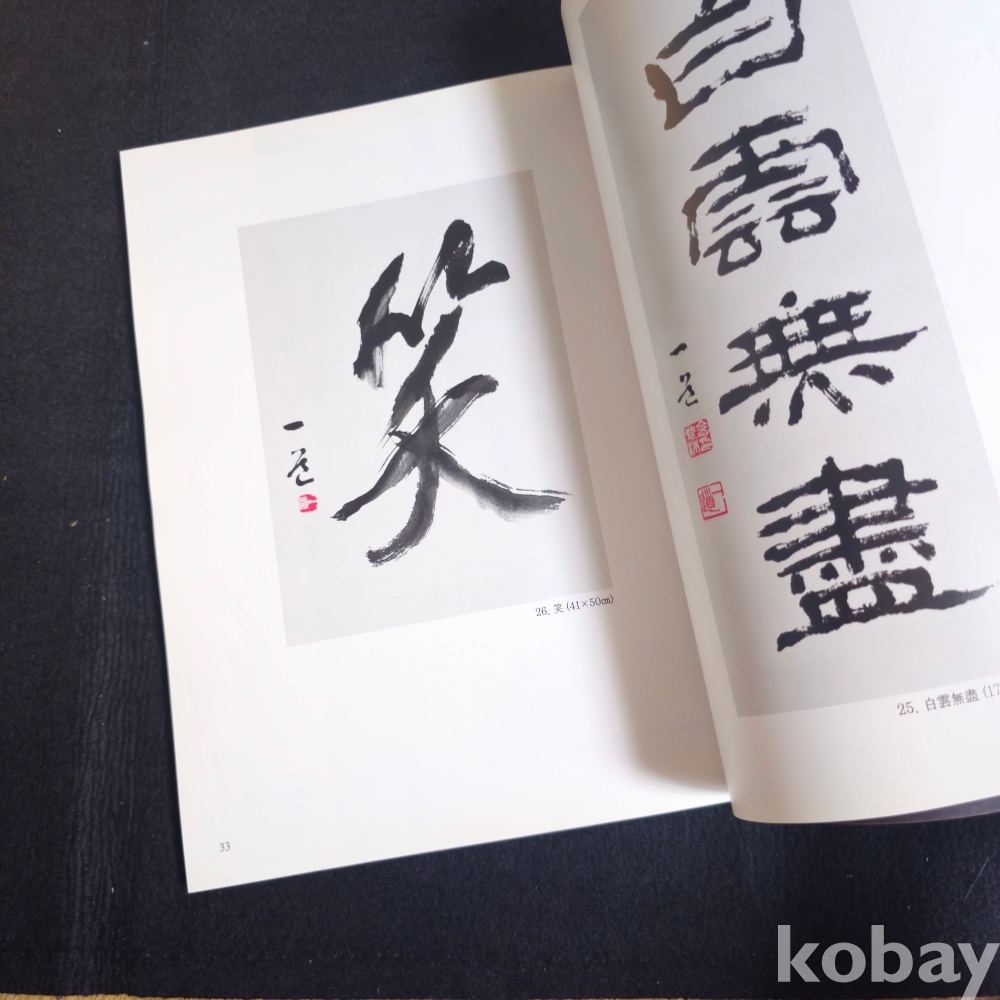 笑
一道
26. 笑 (41×50㎝)
33
白
雲
無
盡
一道
一道
25. 白雲無盡 (17
kobay